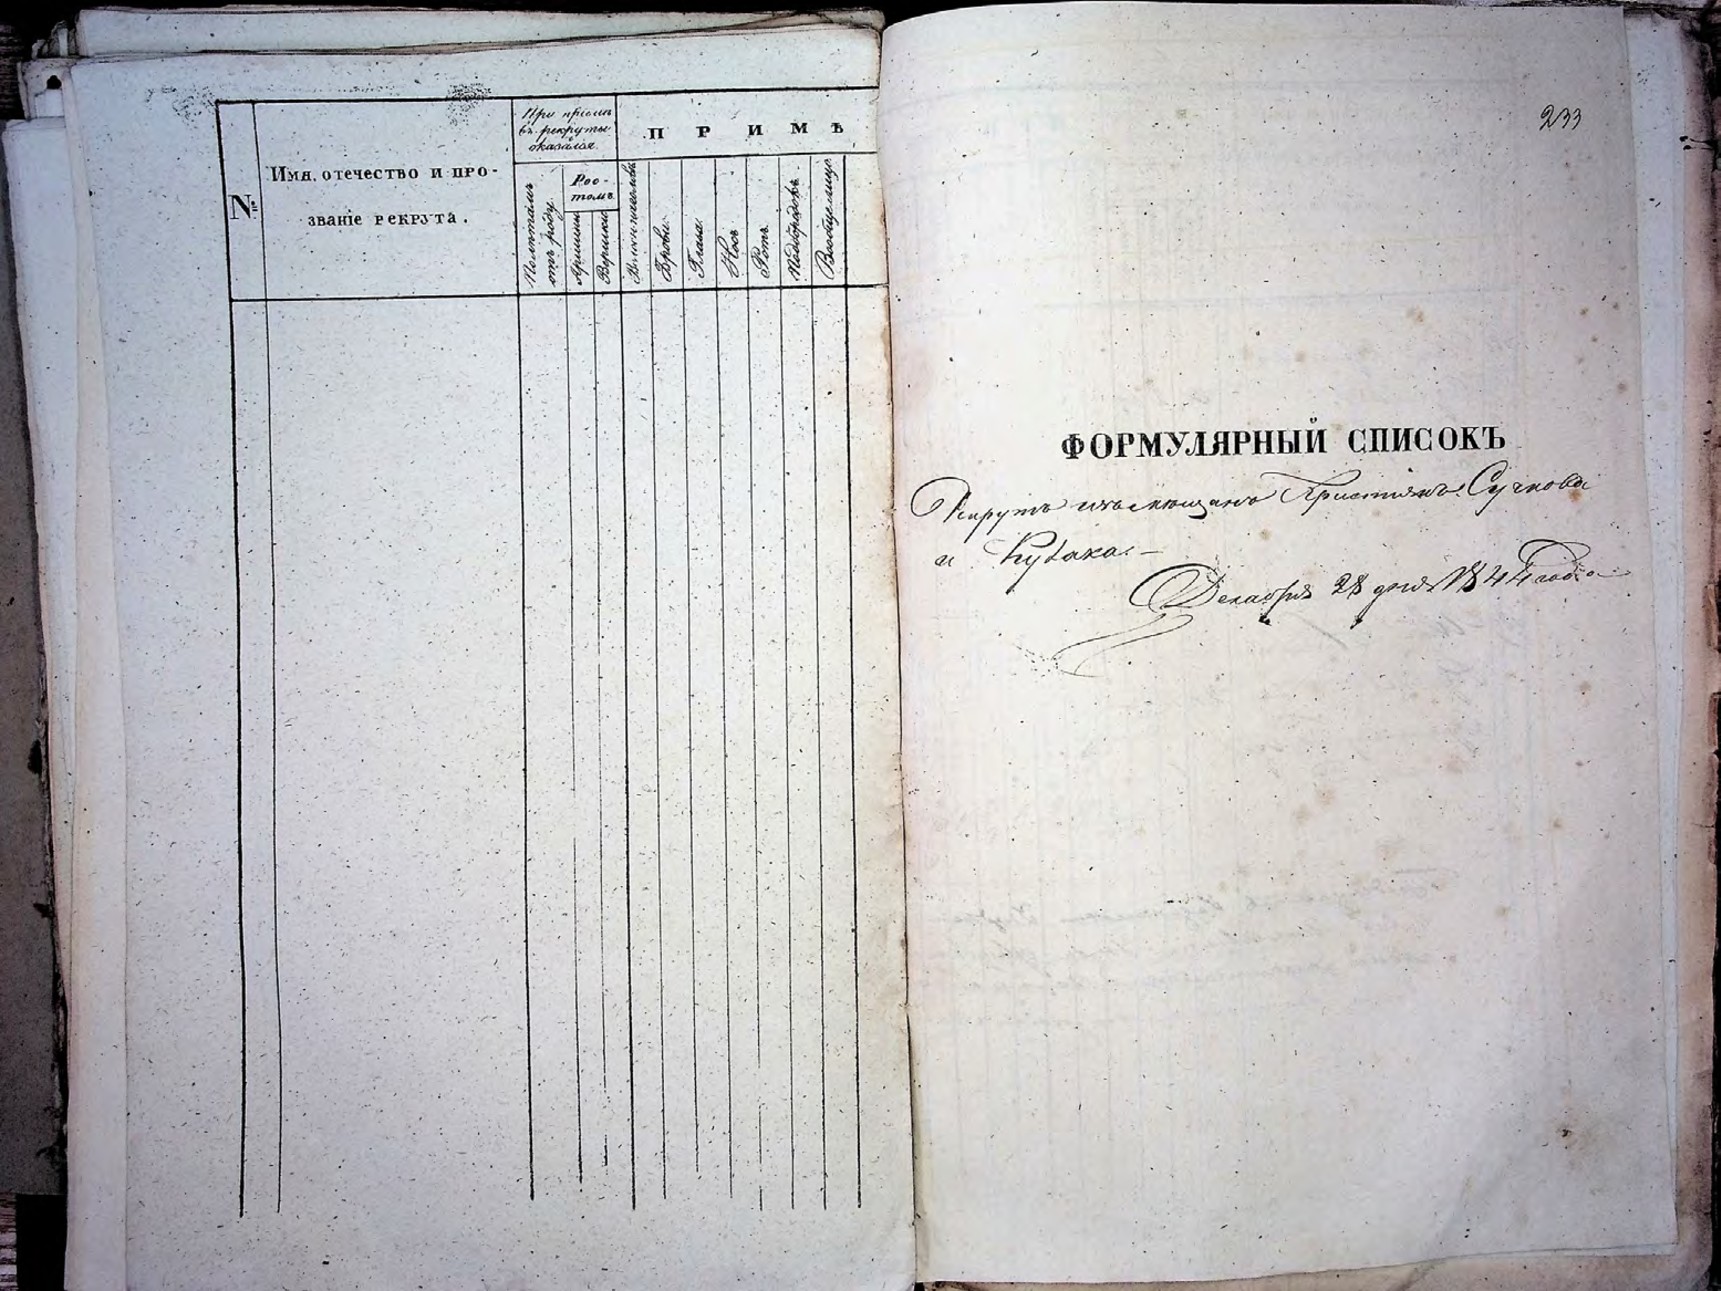 №
Имя, отечество и про-
званіе рекрута.
При приемѣ
въ рекруты
оказался
Полѣтамъ
отъ роду
Рос-
томъ
Аршины
Вершки
П Р И М Ѣ
Брови
Глаза
Носъ
Ротъ
Подбородокъ
Вообще лицо
233
ФОРМУЛЯРНЫЙ СПИСОКЪ
Рекрутъ изъ мещанъ Сучкова
и Кулака.—
Декабря 28 дня 1844 года